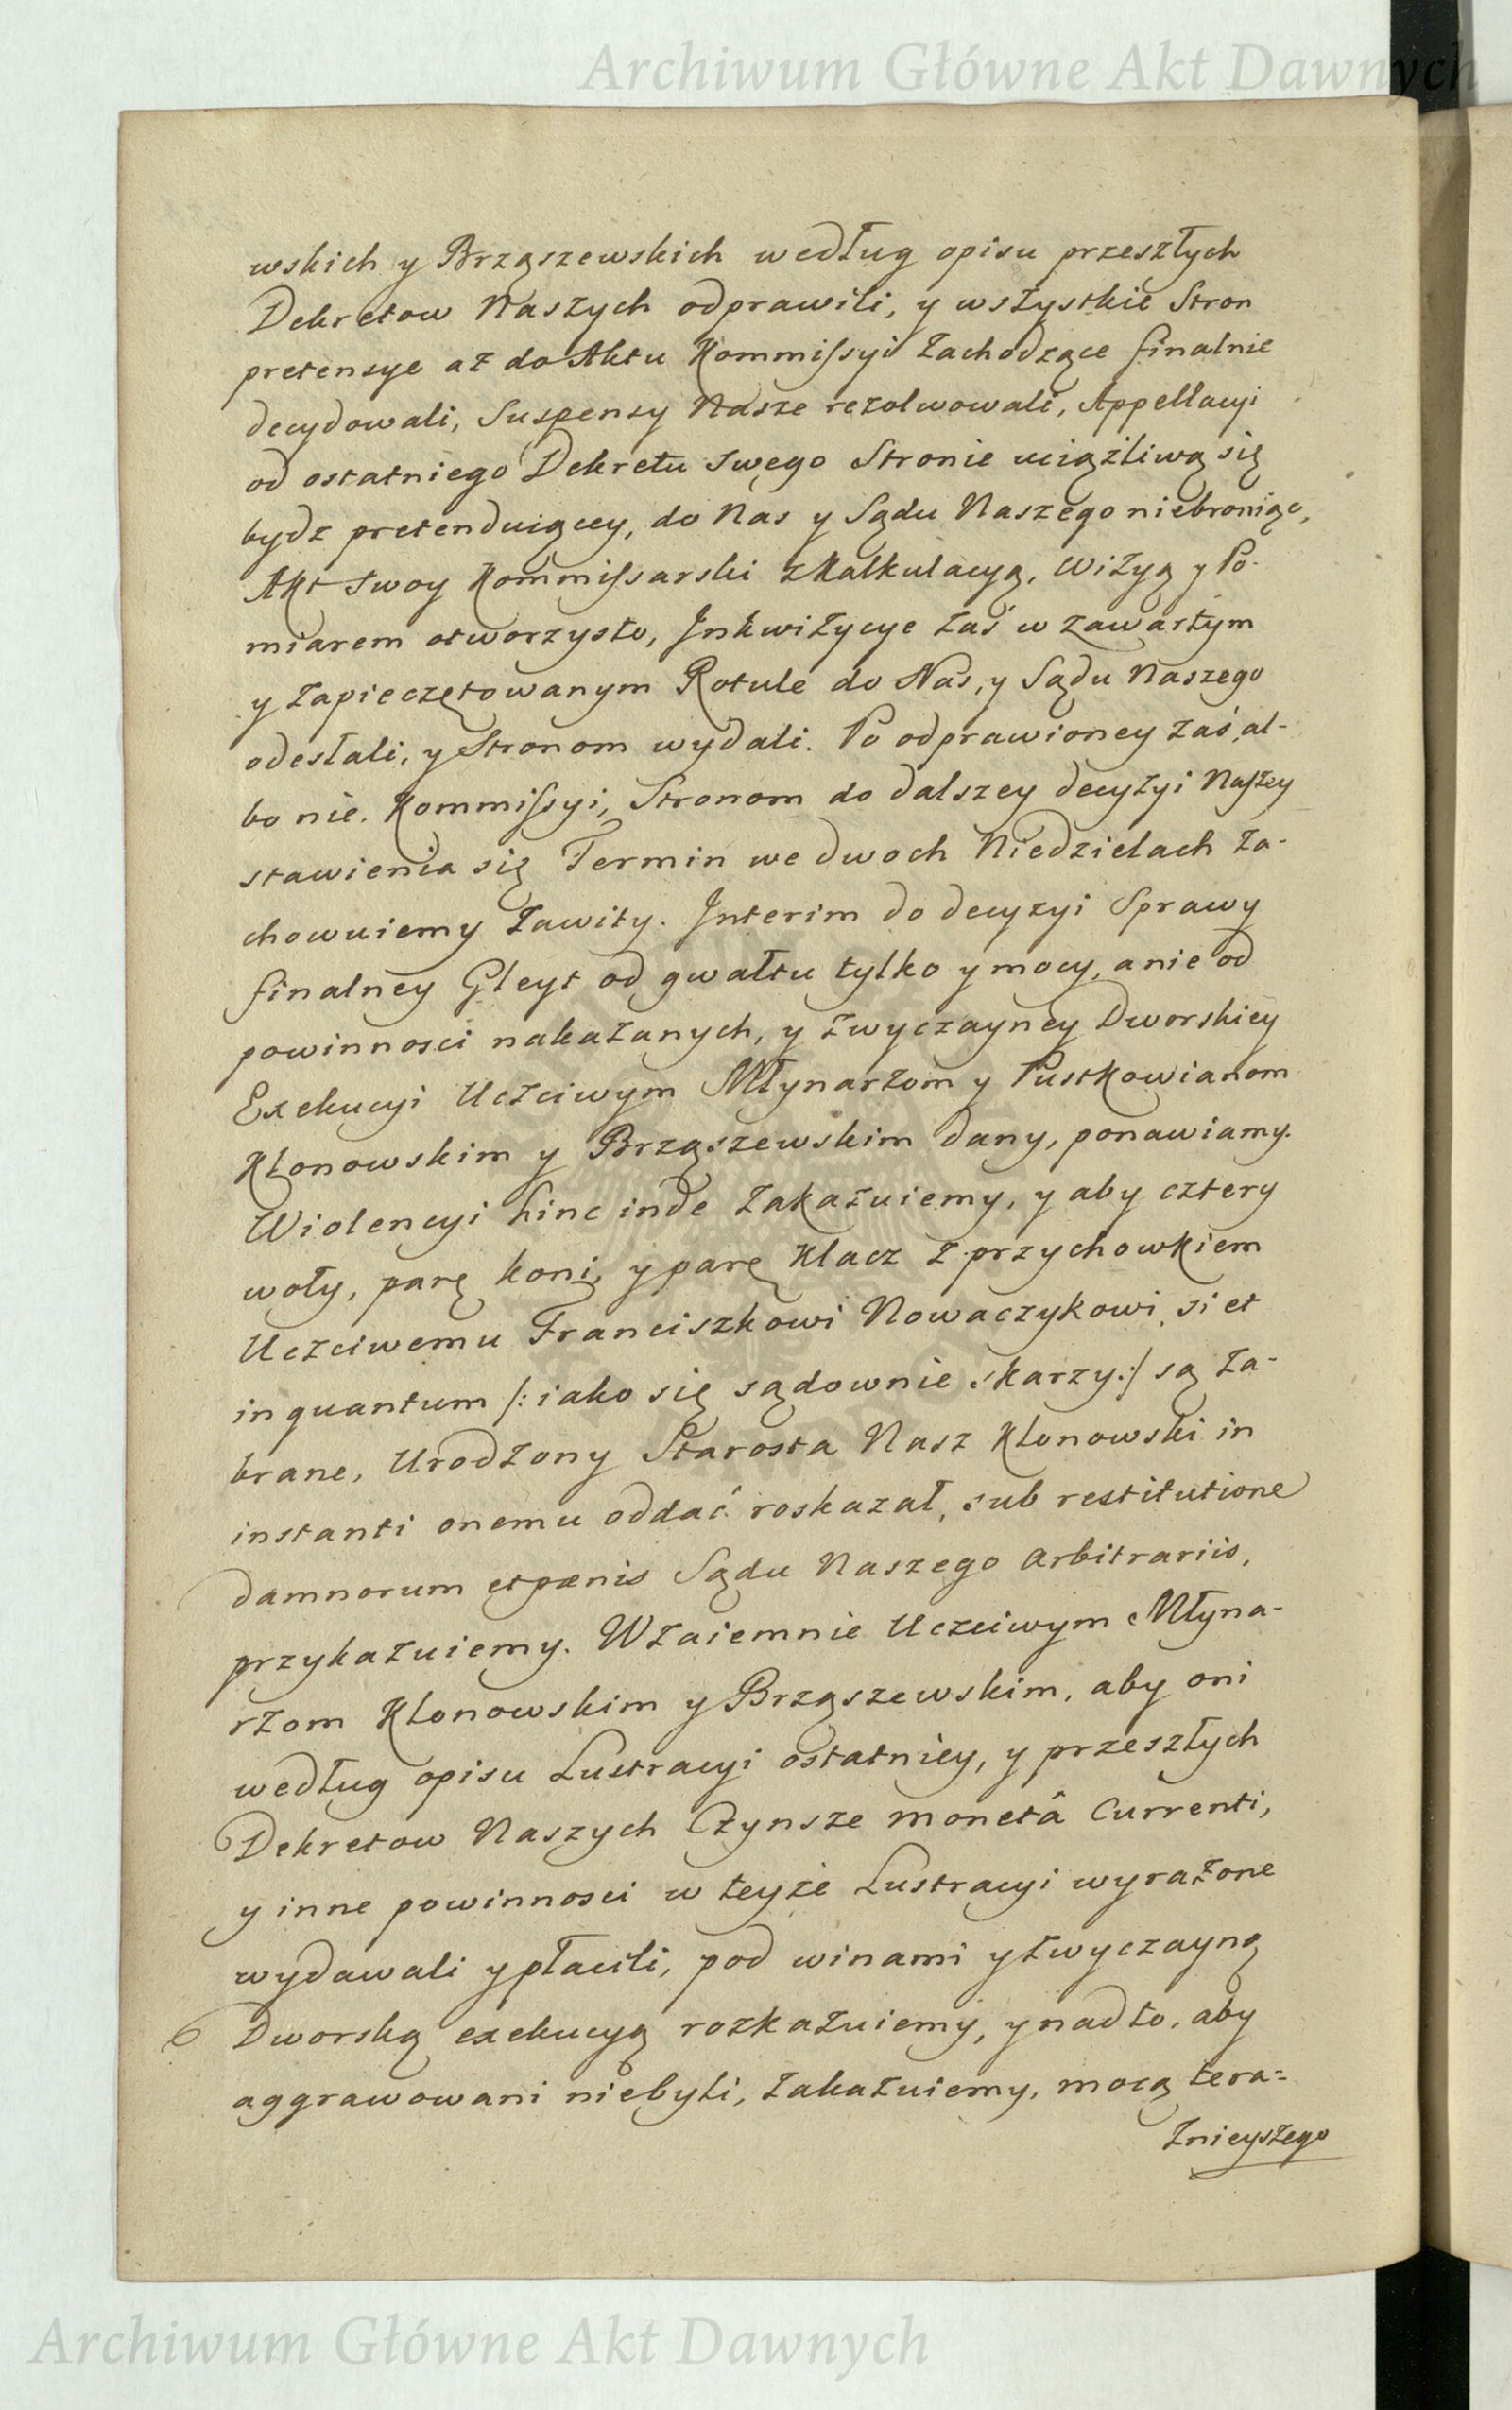 Archiwum Główne Akt Dawnych
wskich y Brząszewskich według opisu przeszłych
Dekretow Naszych odprawili, y wszystkie Stron
pretensye aż do Aktu Kommissyi zachodzące finalnie
decydowali, Suspensy Nasze rezolwowali, Appellacyi
od ostatniego Dekretu swego Stronie uciążliwą się
bydz pretenduiącey, do Nas y Sądu Naszego niebroniąc,
Akt swoy Kommissarski z Kalkulacyą, Wizyą y Po-
miarem otworzysto, Inkwizycye zaś w zawartym
y zapieczętowanym Rotule do Nas, y Sądu Naszego
odesłali, y Stronom wydali. Po odprawioney zaś, al-
bo nie. Kommissyi, Stronom do dalszey decyzyi Naszey
stawienia się Termin we dwoch Niedzielach za-
chowuiemy zawity. Interim do decyzyi Sprawy
finalney Gleyt od gwałtu tylko y mocy, a nie od
powinnosci nakazanych, y zwyczayney Dworskiey
Exekucyi Uczciwym Młynarzom y Pustkowianom
Klonowskim y Brząszewskim dany, ponawiamy.
Wiolencyi hinc inde zakazuiemy, y aby cztery
woły, parę koni, y parę Klacz z przychowkiem
Uczciwemu Franciszkowi Nowaczykowi, si et
in quantum /: iako się sądownie skarzy :/ są za-
brane, Urodzony Starosta Nasz Klonowski in
instanti onemu oddać roskazał, sub restitutione
damnorum et pænis Sądu Naszego arbitrariis,
przykazuiemy. Wzaiemnie Uczciwym Młyna-
rzom Klonowskim y Brząszewskim, aby oni
według opisu Lustracyi ostatniey, y przeszłych
Dekretow Naszych Czynsze monetâ Currenti,
y inne powinnosci w teyże Lustracyi wyrażone
wydawali y płacili, pod winami y zwyczayną
Dworską exekucyą rozkazuiemy, y nad to, aby
aggrawowani niebyli, zakazuiemy, mocą tera-
znieyszego
Archiwum Główne Akt Dawnych